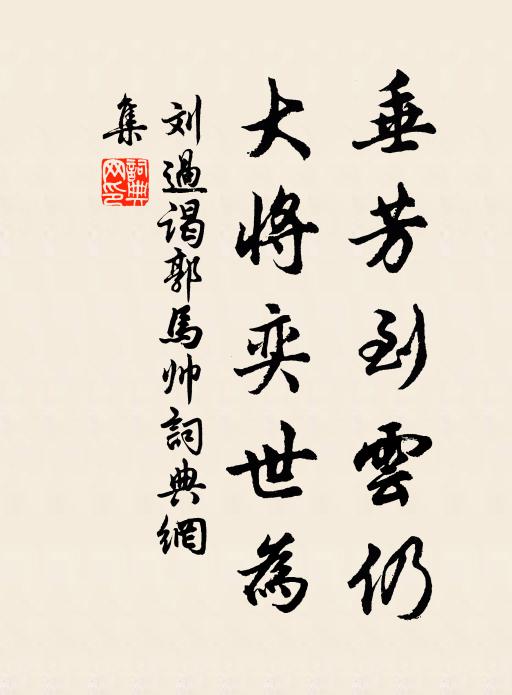 垂芳到雲仍
大將奕世為
刘過谒郭馬帅詞典網
集
詞典網印